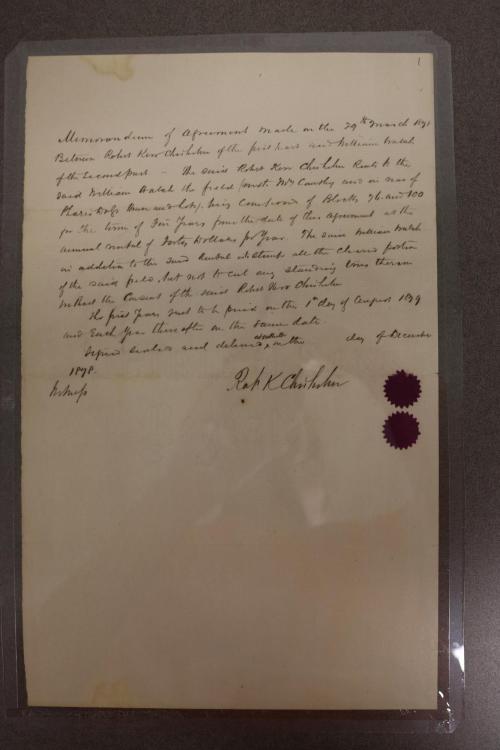 1
Memorandum of Agreement made on the 29th March 1898
Between Robert Kerr Chisholm of the first part and William Walsh
of the Second part - The said Robert Kerr Chisholm Rents to the
said William Walsh the field and in rear of
being Composed of Blocks 76 and 100
for the term of Years from the date of this Agreement at the
annual rental of Forty Dollars per Year. The said William Walsh
in addition to the said Rental all the Cleared portion
of the said field, but not to cut any standing trees thereon
without the Consent of the said Robert Kerr Chisholm
The first Years rent to be paid on the 1st day of August 1899
and Each Year thereafter on the same date.
Signed sealed and delivered on the day of December
1898.
Witness
Robt K Chisholm